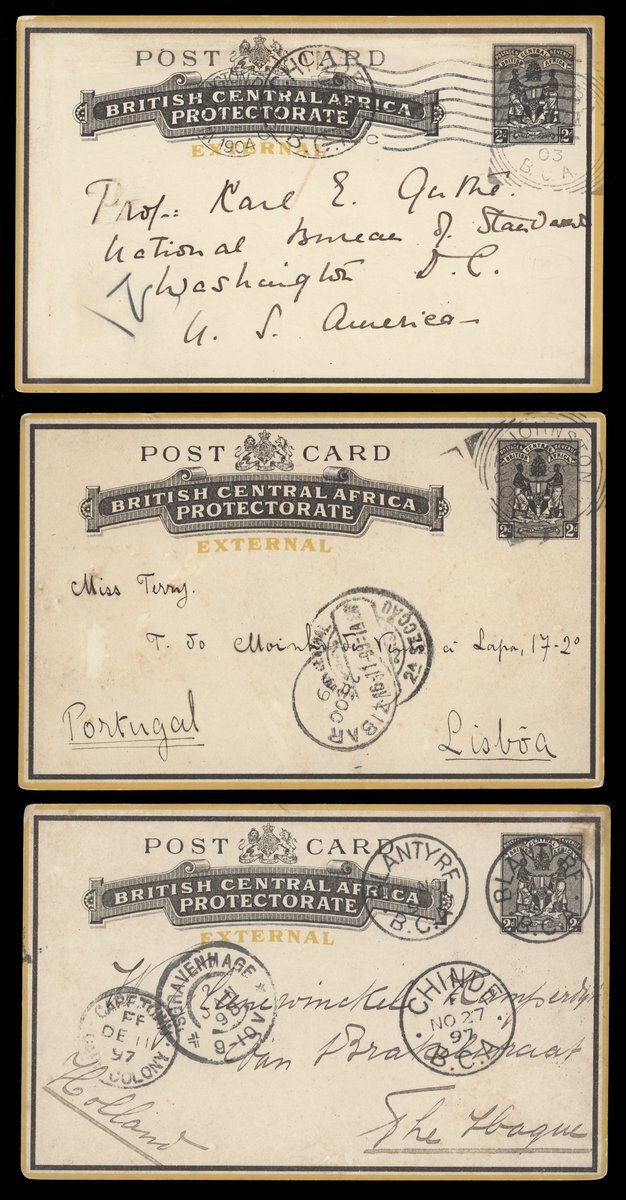 POST CARD
BRITISH CENTRAL AFRICA
PROTECTORATE
EXTERNAL
BRITISH CENTRAL AFRICA
2d 2d
03
B.C.A.
Prof: Karl E. Guthe
National Bureau of Standards
Washington D.C.
U. S. America
POST CARD
BRITISH CENTRAL AFRICA
PROTECTORATE
EXTERNAL
JOHNSTON
BRITISH CENTRAL AFRICA
2d 2d
Miss Terry.
T. do à Lapa, 17-2º
2ª SECCAO
ZIBAR
OC
Portugal
Lisbôa
POST CARD
BRITISH CENTRAL AFRICA
PROTECTORATE
EXTERNAL
LANTYRE
B.C.A.
BLANTYRE
B.C.A.
2d 2d
S'GRAVENHAGE
98
9-10V
CAPE TOWN
FF
DE 11
97
COLONY
CHINDE
NO 27
97
B.C.A.
van
Holland
The Hague